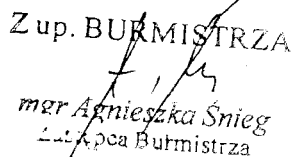 Z up. BURMISTRZA
mgr Agnieszka Śnieg
Zastępca Burmistrza